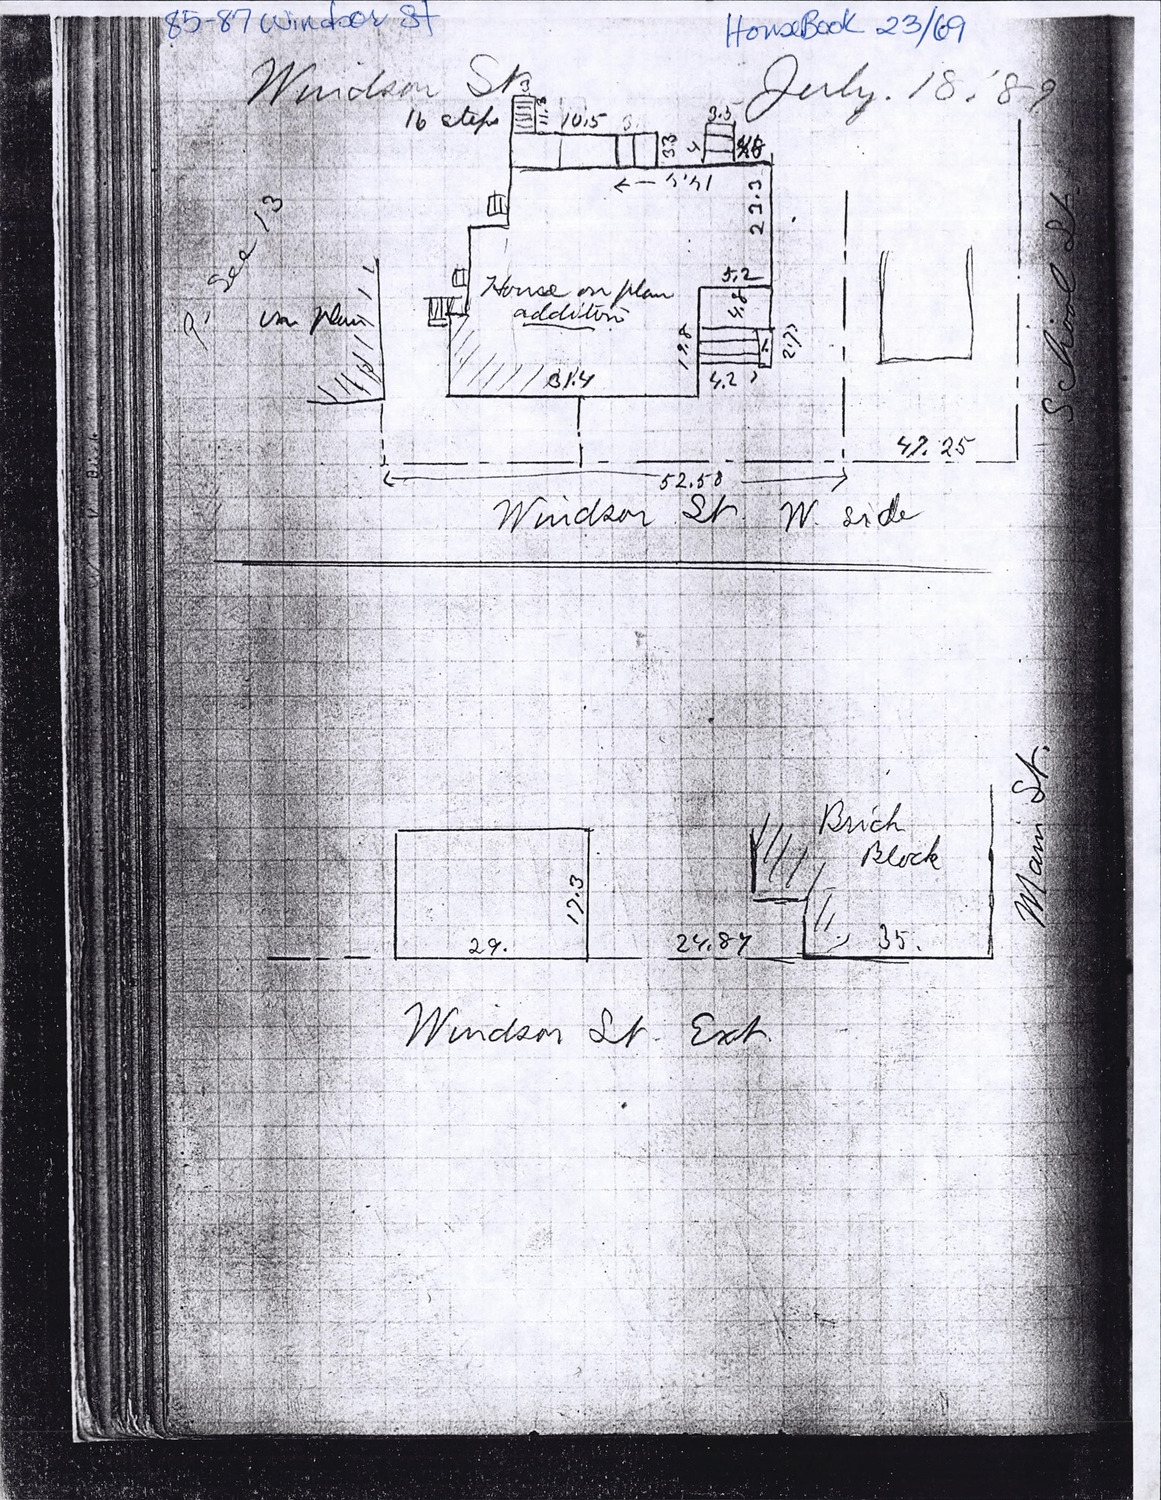 85-87 Windsor St
HouseBook 23/69
Windsor St.
July. 18. '89
16 steps
3
11.3
10.5
3.
3.3
4
3.5
← 14.4
23.3
See 13
on plan
House on plan
addition
5.2
4.8
19.8
4.2
31.4
School St.
47.25
52.50
Windsor St. W. side
Brick
Block
Main St.
19.3
29.
24.87
35.
Windsor St. Ext.